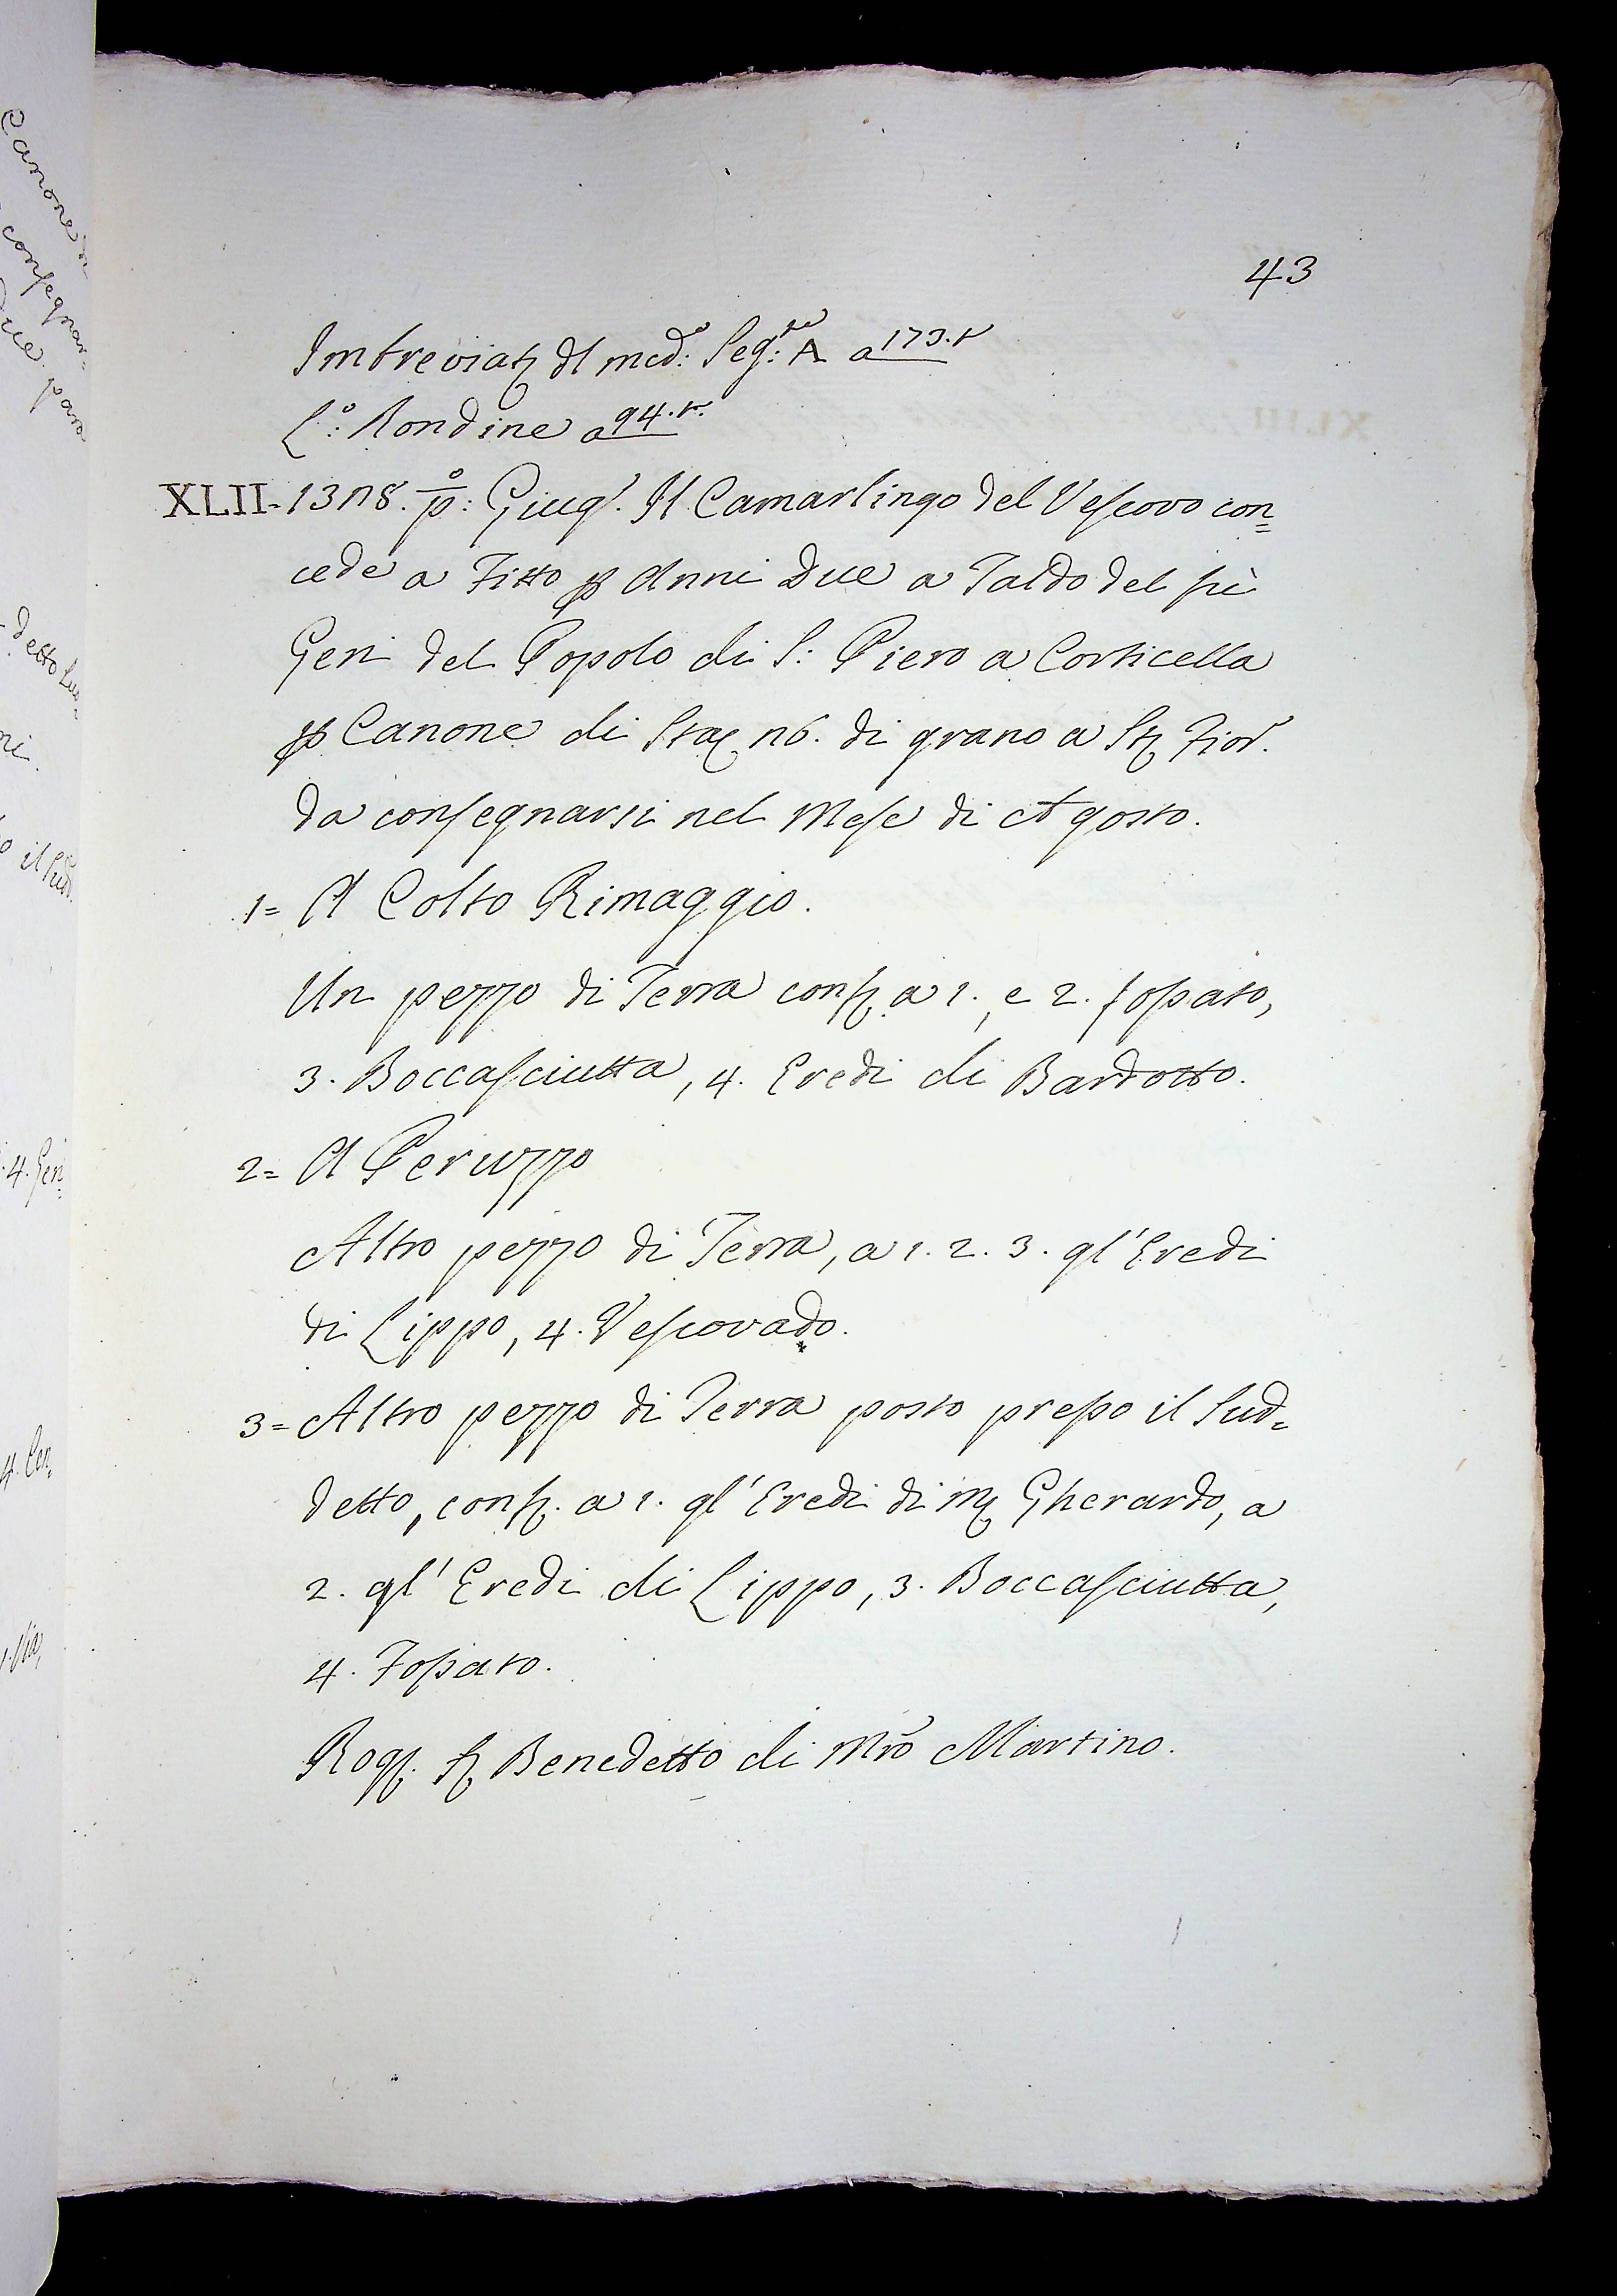 43
Imbreviaz dl med:º Seg:ᵗᵉ A a 173.t
L:º Rondine a 94.t.
XLII- 1318. pº: Giug.º Il Camarlingo del Vescovo con=
cede a Fitto p Anni Due a Taldo del fù
Geri del Popolo di S: Piero a Corticella
p Canone di Stag 16. di grano a St Fior.º
da consegnarsi nel Mese di Agosto.
1= A Colto Rimaggio.
Un pezzo di Terra conf. a 1., e 2. fossato,
3. Boccasciutta, 4. Eredi di Bardotto.
2= A Peruzzo
Altro pezzo di Terra, a 1. 2. 3. gl' Eredi
di Lippo, 4. Vescovado.
3= Altro pezzo di Terra posto presso il Sud=
detto, conf. a 1. gl' Eredi di M Gherardo, a
2. gl' Eredi di Lippo, 3. Boccasciutta,
4. Fossato.
Rog. S Benedetto di Mrõ Martino.
Canone
consegnar=
due para
detto
il Sud.
4. Geri
4.
1. Via,